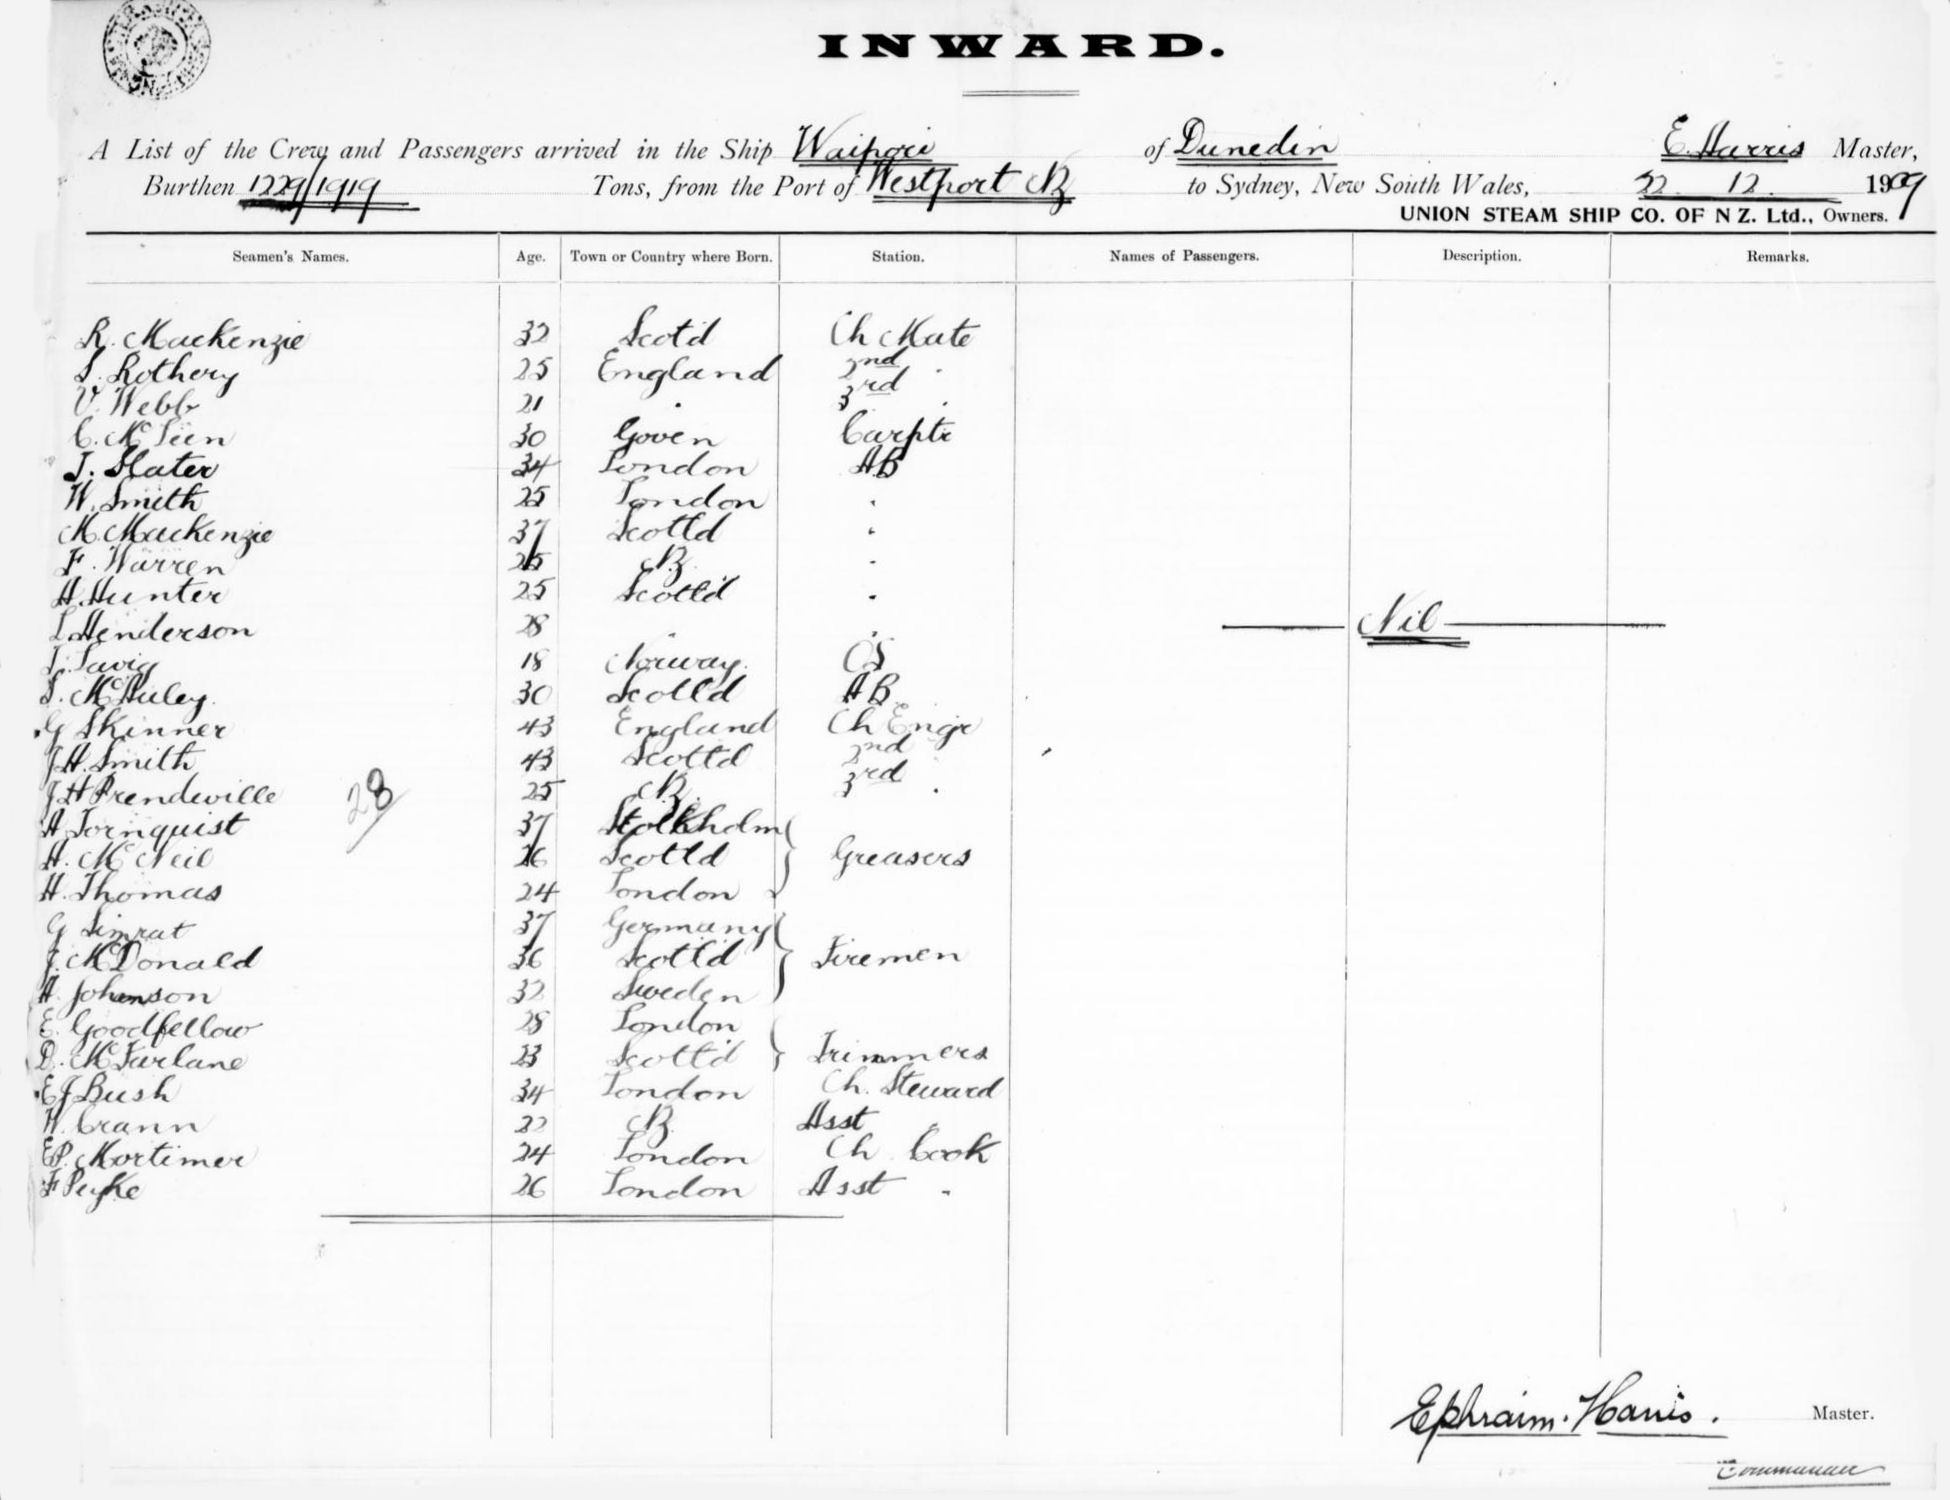 INWARD.
A List of the Crew and Passengers arrived in the Ship Waipori of Dunedin E. Harris Master,
Burthen 1229/1919 Tons, from the Port of Westport NZ to Sydney, New South Wales, 22 12 1909
UNION STEAM SHIP CO. OF N Z. Ltd., Owners.
Seamen's Names. Age. Town or Country where Born. Station. Names of Passengers. Description. Remarks.
R. Mackenzie 32 Scot'd Ch Mate
S. Rothery 25 England 2nd "
V. Webb 21 " 3rd "
C. McLeen 30 Goven Carptr
J. Slater 34 London AB
W. Smith 25 London "
M. Mackenzie 37 Scotld "
F. Warren 25 NZ "
H. Hunter 25 Scotld "
L Henderson 28 " "
Nil
18 Norway. OS
S. McAuley. 30 Scotld AB
G Skinner 43 England Ch Engr
J H. Smith 43 Scotld 2nd "
J H Prendeville 25 NZ. 3rd "
28
A Tornquist 37 Stolkholm
H. McNeil 26 Scotld Greasers
H. Thomas 24 London
G 37 Germany
J. McDonald 36 Scotld Firemen
A. Johnson 32 Sweden
E. Goodfellow 28 London
D. McFarlane 23 Scottd Trimmers
E J Bush 34 London Ch. Steward
W. Crann 22 NZ Asst "
E P. Mortimer 24 London Ch Cook
F Peyke 26 London Asst "
Ephraim. Harris. Master.